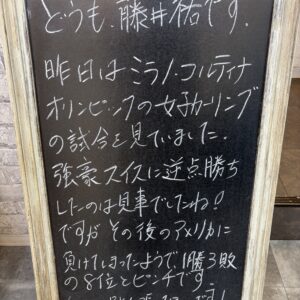 どうも、藤井祐です.
昨日はミラノ.コルティナ
オリンピックの女子カーリング
の試合を見ていました.
強豪スイスに逆点勝ち
したのは見事でしたね!
ですが その後のアメリカに
負けてしまったようで1勝3敗
の8位とピンチです.